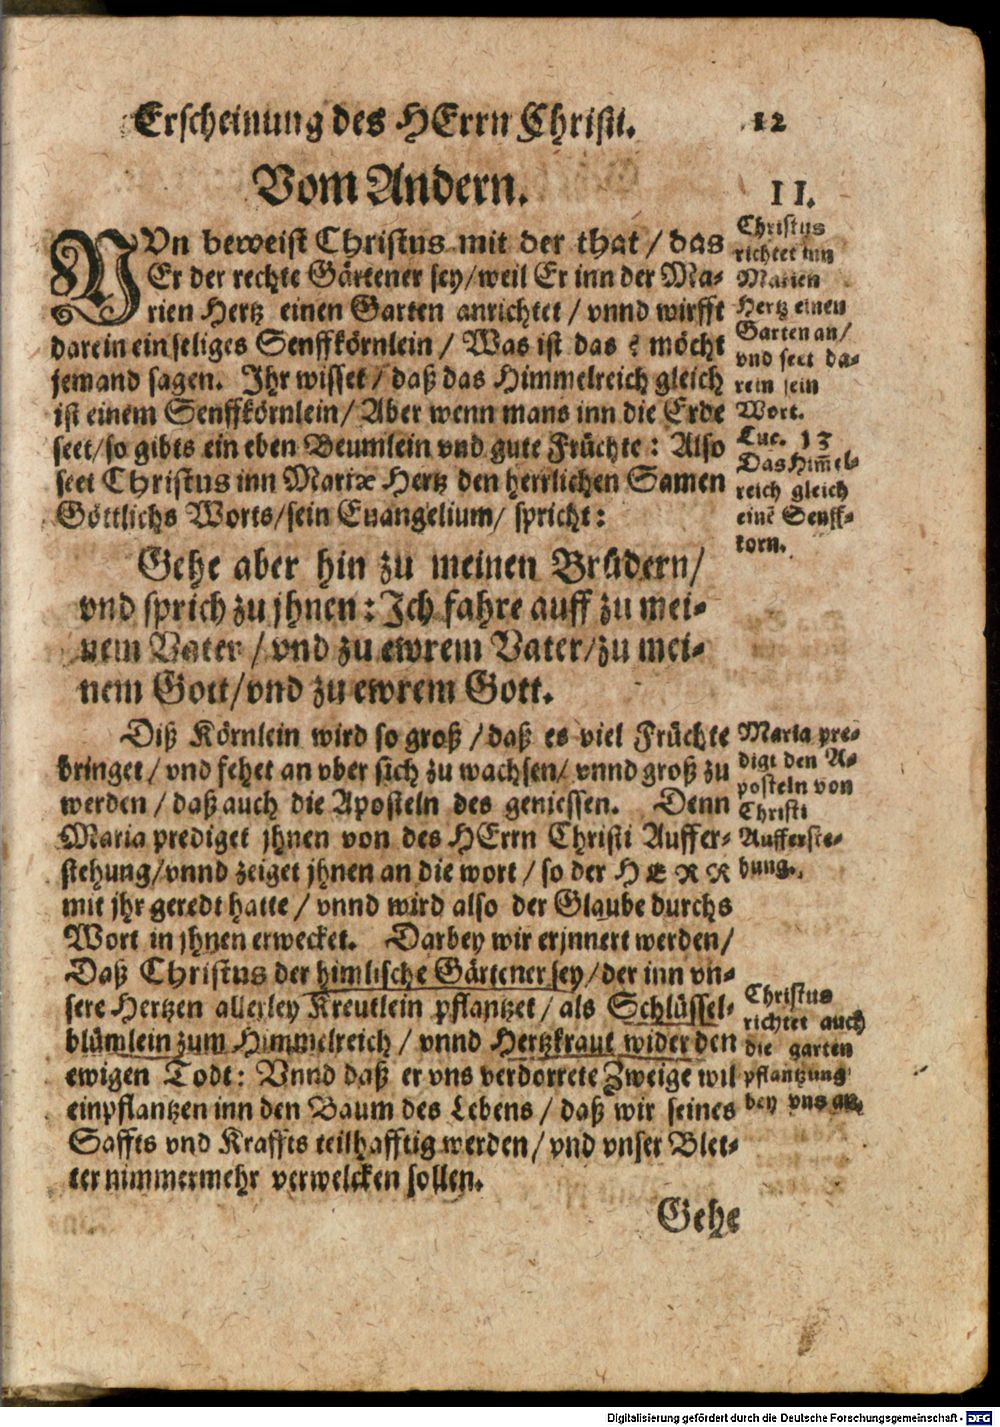 Erscheinung des HErrn Christi. 12
Vom Andern.
NVn beweist Christus mit der that / das
Er der rechte Gärtener sey/weil Er inn der Ma-
rien Hertz einen Garten anrichtet / vnnd wirfft
darein ein seliges Senffkörnlein / Was ist das? möcht
jemand sagen. Ihr wisset / daß das Himmelreich gleich
ist einem Senffkörnlein/ Aber wenn mans inn die Erde
seet/so gibts ein eben Beumlein vnd gute Früchte: Also
seet Christus inn Mariæ Hertz den herrlichen Samen
Göttlichs Worts/sein Euangelium/ spricht:
II.
Christus
richtet inn
Marien
Hertz einen
Garten an/
vnd seet da-
rein sein
Wort.
Luc. 13
Das Him̃el-
reich gleich
einẽ Senff-
korn.
Gehe aber hin zu meinen Brüdern/
vnd sprich zu jhnen: Ich fahre auff zu mei-
nem Vater / vnd zu ewrem Vater/zu mei-
nem Gott/vnd zu ewrem Gott.
Diß Körnlein wird so groß / daß es viel Früchte
bringet / vnd fehet an vber sich zu wachsen/ vnnd groß zu
werden / daß auch die Aposteln des geniessen. Denn
Maria prediget jhnen von des HErrn Christi Auffer-
stehung/vnnd zeiget jhnen an die wort / so der HERR
mit jhr geredt hatte / vnnd wird also der Glaube durchs
Wort in jhnen erwecket. Darbey wir erjnnert werden/
Daß Christus der himlische Gärtener sey/der inn vn-
sere Hertzen allerley Kreutlein pflantzet / als Schlüssel-
blümlein zum Himmelreich / vnnd Hertzkraut wider den
ewigen Todt: Vnnd daß er vns verdorrete Zweige wil
einpflantzen inn den Baum des Lebens / daß wir seines
Saffts vnd Kraffts teilhafftig werden / vnd vnser Blet-
ter nimmermehr verwelcken sollen.
Maria pre-
digt den A-
posteln von
Christi
Aufferste-
hung.
Christus
richtet auch
die garten
pflantzung
bey vns an.
Gehe
Digitalisierung gefördert durch die Deutsche Forschungsgemeinschaft - DFG